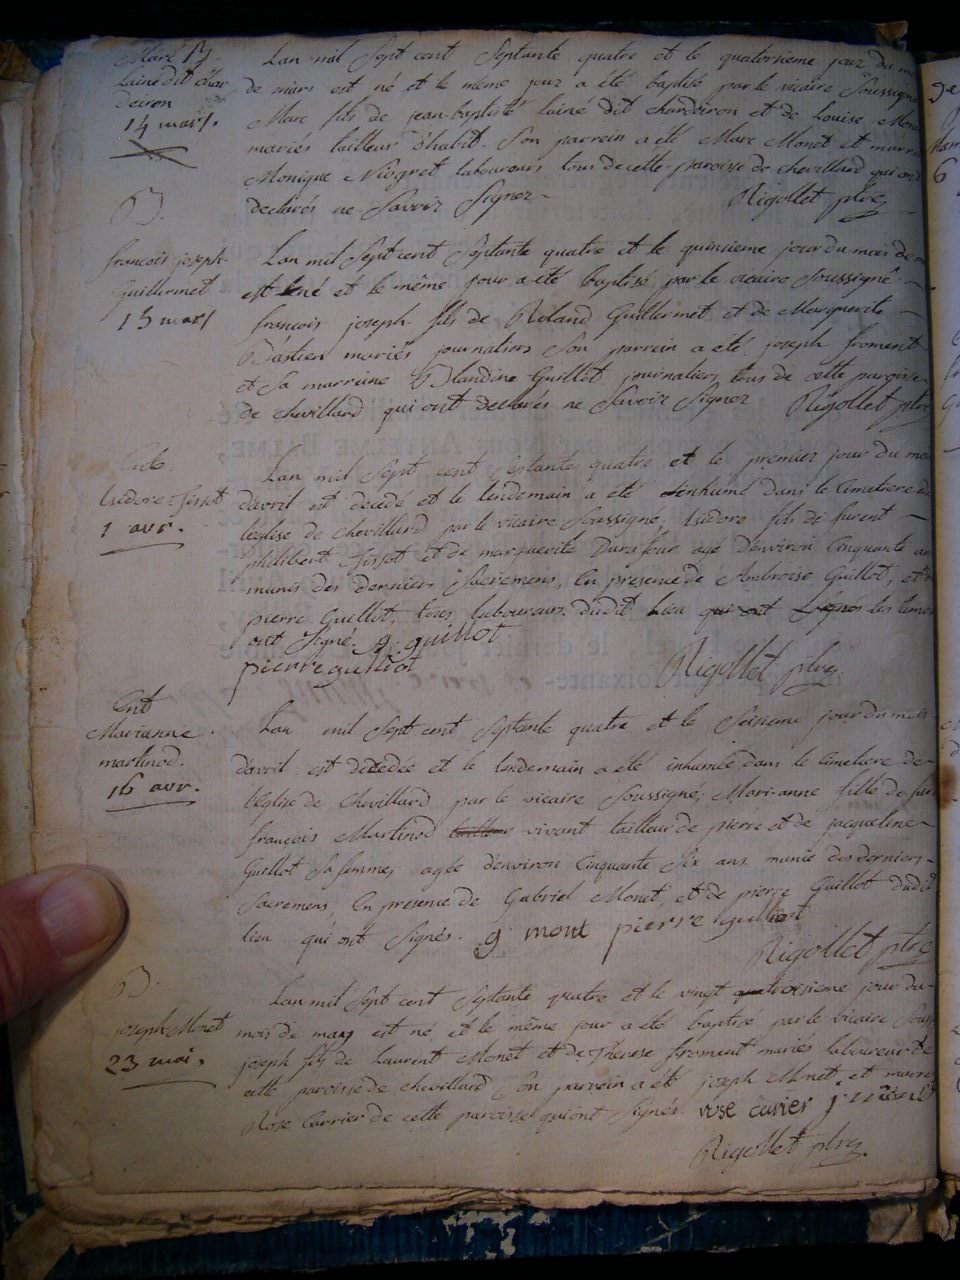 Marc
Lainé dit char
deiron
14 mars.
Lan mil Sept cent Septante quatre et le quatorsieme jour du
de mars est né et le même jour a été baptisé par le vicaire Soussigné
Marc fils de jean-baptiste lainé dit chardeiron et de Louise
mariés tailleur d'habit. Son parrein a été Marc Monet et
Monique Niogret laboureurs tous de cette paroisse de chevillard qui ont
declarés ne Savoir Signer - Rigollet ptre
B.
françois joseph
Guillermet
15 mars
Lan mil Sept cent Septante quatre et le quinsieme jour du mois de
est né et le même jour a été baptisé par le vicaire Soussigné
françois joseph fils de Roland Guillermet et de Marguerite
Bastien mariés journaliers Son parrein a été joseph froment
et Sa marreine Blandine Guillot journaliers tous de cette paroisse
de chevillard qui ont declarés ne Savoir Signer Rigollet ptre
Isidore
1 avr.
Lan mil Sept cent Septante quatre et le premier jour du
d'avril est decedé et le lendemain a été inhumé dans le Cimetiere de
l'eglise de Chevillard par le vicaire Soussigné, Isidore fils de
philibert et de marguerite Dufour agé d'environ Cinquante
munis des derniers Sacremens, En presence de Ambroise Guillot, et
pierre Guillot, tous laboureurs dudit Lieu qui ont
ont Signé. guillot
pierre guillot Rigollet ptre
Ent
Marianne
martinod.
16 avr.
Lan mil Sept cent Septante quatre et le Seisieme jour du mois
d'avril est decedée et le lendemain a été inhumée dans le Cimetiere de
l'Eglise de Chevillard par le vicaire Soussigné, Mari-anne fille de
françois Martinod vivant tailleur de pierre et de jacqueline
Guillot Sa femme, agée d'environ Cinquante Six ans munie des derniers
Sacremens, En presence de Gabriel Monet, et de pierre Guillot dudit
lieu qui ont Signés. g monet pierre guillot
Rigollet ptre
B.
joseph Monet
23 mai.
Lan mil Sept cent Septante quatre et le vingt troisieme jour du
mois de may est né et le même jour a été baptisé par le vicaire
joseph fils de Laurent Monet et de Therese froment mariés laboureur de
cette paroisse de chevillard Son parrein a été joseph Monet. et
Rose Carrier de cette paroisse qui ont Signés. rose carier
Rigollet ptre